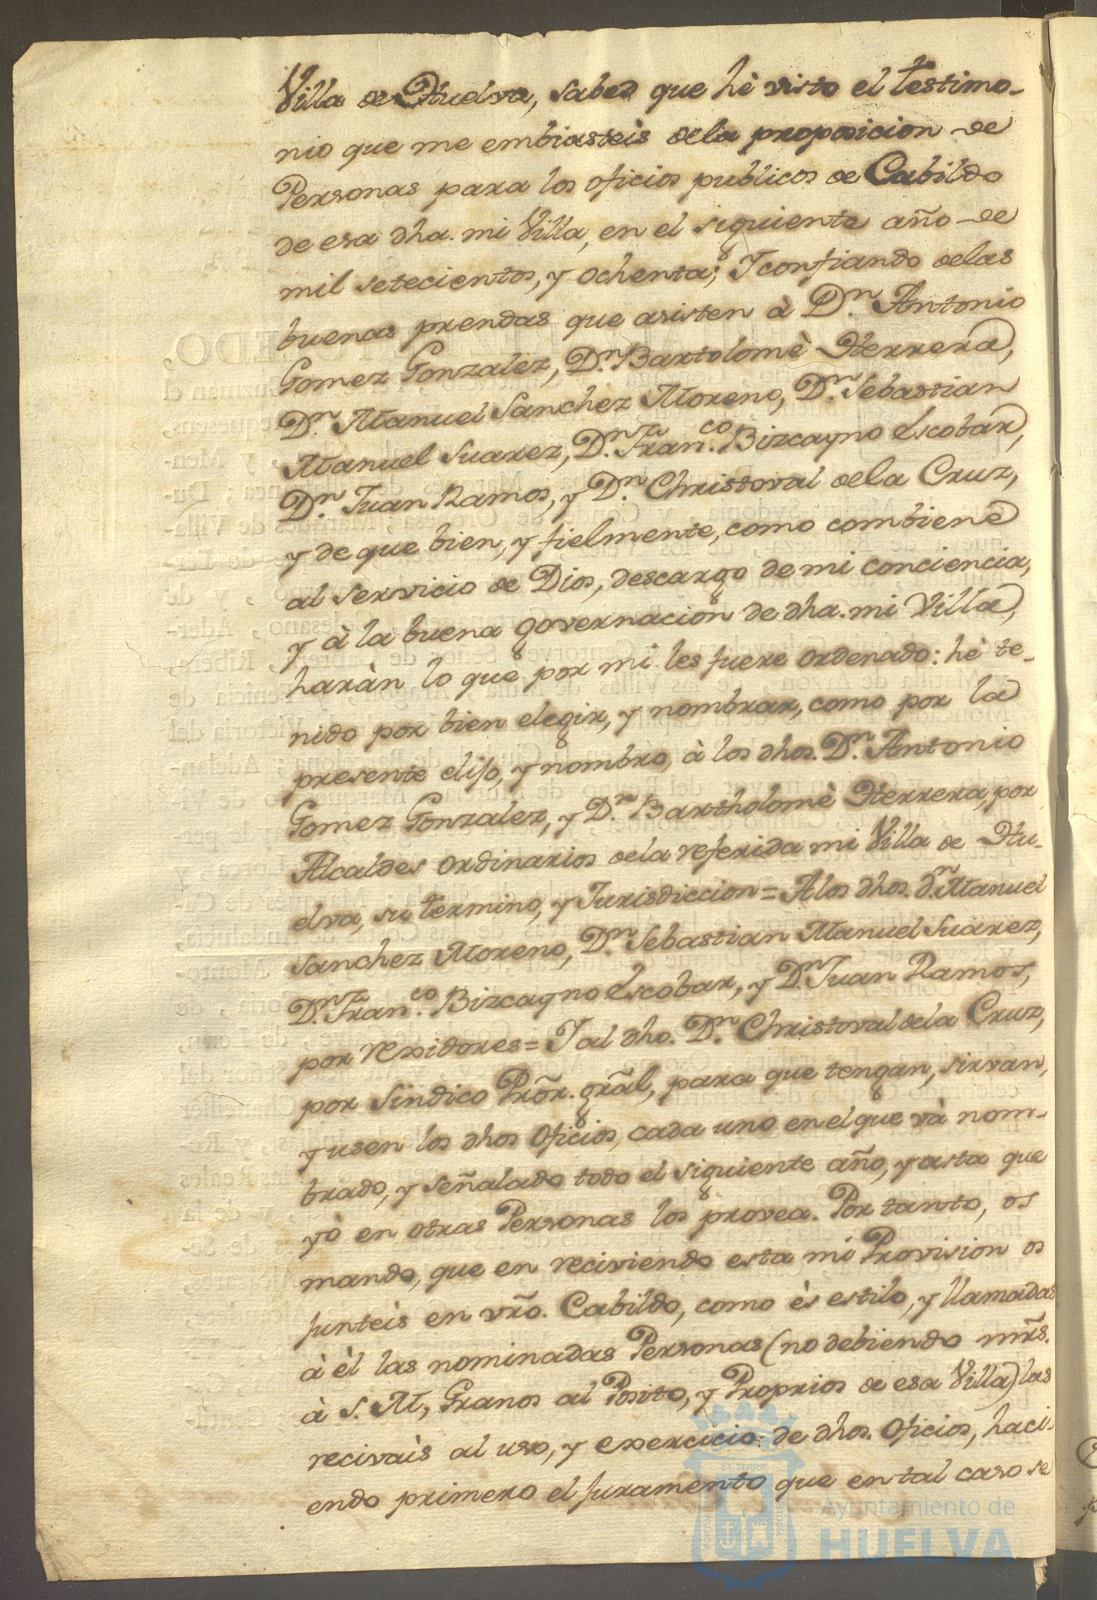 Villa de Huelva, Sabed que hè visto el testimo-
nio que me embiasteis de la proposicion de
Personas para los oficios publicos de Cabildo
de esa dha. mi Villa, en el siguiente año de
mil setecientos, y ochenta; Y confiando de las
buenas prendas que asisten à Dn. Antonio
Gomez Gonzalez, Dn. Bartolomè Herrera,
Dn. Manuel Sanchez Moreno, Dn. Sebastian
Manuel Suarez, Dn. Franco. Bizcayno Escobar,
Dn. Juan Ramos, y Dn. Christoval de la Cruz,
y de que bien, y fielmente, como combiene
al servicio de Dios, descargo de mi conciencia,
y à la buena governacion de dha. mi Villa,
haràn lo que por mi les fuere ordenado: hè te-
nido por bien elegir, y nombrar, como por la
presente elijo, y nombro, à los dhos. Dn. Antonio
Gomez Gonzalez, y Dn. Bartholomè Herrera, por
Alcaldes ordinarios de la referida mi Villa de Hu-
elva, su termino, y Jurisdiccion = A los dhos. dn. Manuel
Sanchez Moreno, Dn. Sebastian Manuel Suárez,
Dn. Franco. Bizcayno Escobar, y Dn. Juan Ramos,
por rexidores = Y al dho. Dn. Christoval de la Cruz,
por Sindico Prõr. grãl, para que tengan, sirvan,
y usen los dhos Oficios, cada uno en el que và nom-
brado, y señalado todo el siguiente año, y asta que
yò en otras Personas los provea. Por tanto, os
mando, que en reciviendo esta mi Provision os
junteis en vrõ. Cabildo, como ès estilo, y llamadas
à èl las nominadas Personas (no debiendo mr̃s.
à S. M, Granos al Posito, y Proprios de esa Villa) las
recivais al uso, y exercicio de dhos. Oficios, haci-
endo primero el juramento que en tal caso se
Ayuntamiento de
HUELVA